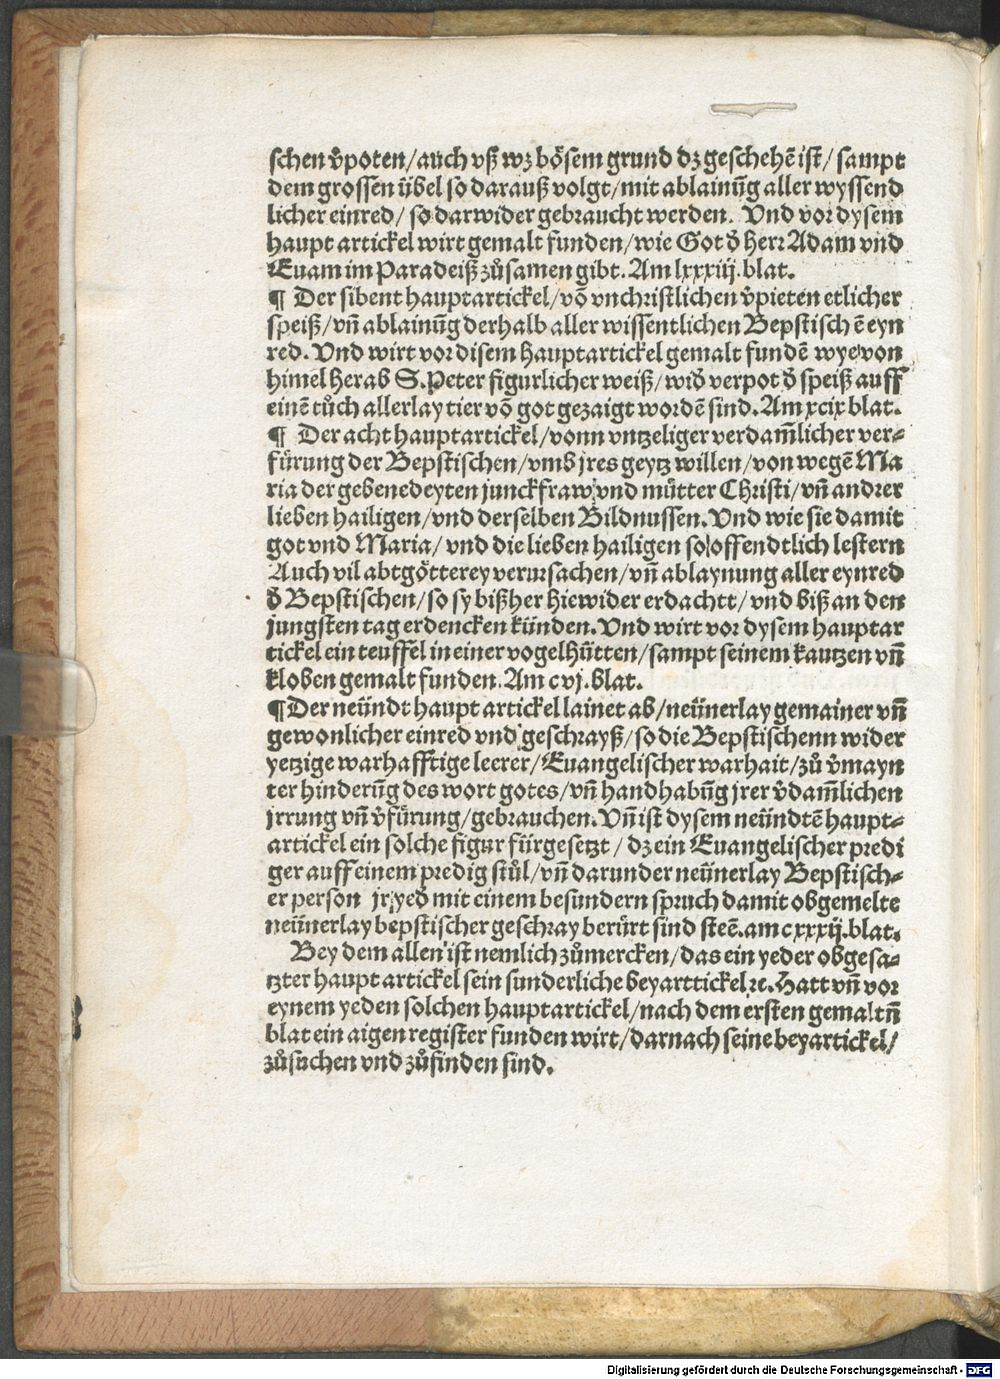 schen v̄poten/auch vß wz bösem grund dz geschehē ist/ sampt
dem grossen übel so darauß volgt/mit ablainūg aller wyssend
licher einred/ so darwider gebraucht werden. Vnd vor dysem
haupt artickel wirt gemalt funden/wie Got d̄ herr Adam vnd
Euam im Paradeiß zůsamen gibt. Am lxxxiij.blat.
¶ Der sibent hauptartickel/vō vnchristlichen v̄pieten etlicher
speiß/vn̄ ablainūg derhalb aller wissentlichen Bepstisch ē eyn
red. Vnd wirt vor disem hauptartickel gemalt fundē wye von
himel herab S.Peter figurlicher weiß/wid̄ verpot d̄ speiß auff
einē tůch allerlay tier vō got gezaigt wordē sind. Am xcix blat.
¶ Der acht hauptartickel/vonn vntzeliger verdam̄licher ver⸗
fürung der Bepstischen/vmb jres geytz willen/von wegē Ma
ria der gebenedeyten junckfraw vnd mütter Christi/vn̄ andrer
lieben hailigen/vnd derselben Bildnussen. Vnd wie sie damit
got vnd Maria/vnd die lieben hailigen so offendtlich lestern
Auch vil abtgötterey verursachen/vn̄ ablaynung aller eynred
d̄ Bepstischen/so sy bißher hiewider erdachtt/vnd biß an den
jungsten tag erdencken künden. Vnd wirt vor dysem hauptar
tickel ein teuffel in einer vogelhütten/sampt seinem kautzen vn̄
kloben gemalt funden. Am cvj.blat.
¶ Der neündt haupt artickel lainet ab/neünerlay gemainer vn̄
gewonlicher einred vnd geschrayß/so die Bepstischenn wider
yetzige warhafftige leerer/Euangelischer warhait/zů v̄mayn
ter hinderūg des wort gotes/vn̄ handhabūg jrer v̄dam̄lichen
jrrung vn̄ v̄fürung/gebrauchen. Vn̄ ist dysem neündtē haupt⸗
artickel ein solche figur fürgesetzt/ dz ein Euangelischer predi
ger auff einem predig stůl/vn̄ darunder neünerlay Bepstisch⸗
er person jr yed̄ mit einem besundern spruch damit obgemelte
neünerlay bepstischer geschray berürt sind steē.am cxxxij.blat.
Bey dem allen ist nemlich zůmercken/das ein yeder obgesa⸗
tzter haupt artickel sein sunderliche beyarttickel ⁊c. Hatt vn̄ vor
eynem yeden solchen hauptartickel/nach dem ersten gemaltn̄
blat ein aigen register funden wirt/darnach seine beyartickel/
zůsuchen vnd zůfinden sind.
Digitalisierung gefördert durch die Deutsche Forschungsgemeinschaft - DFG